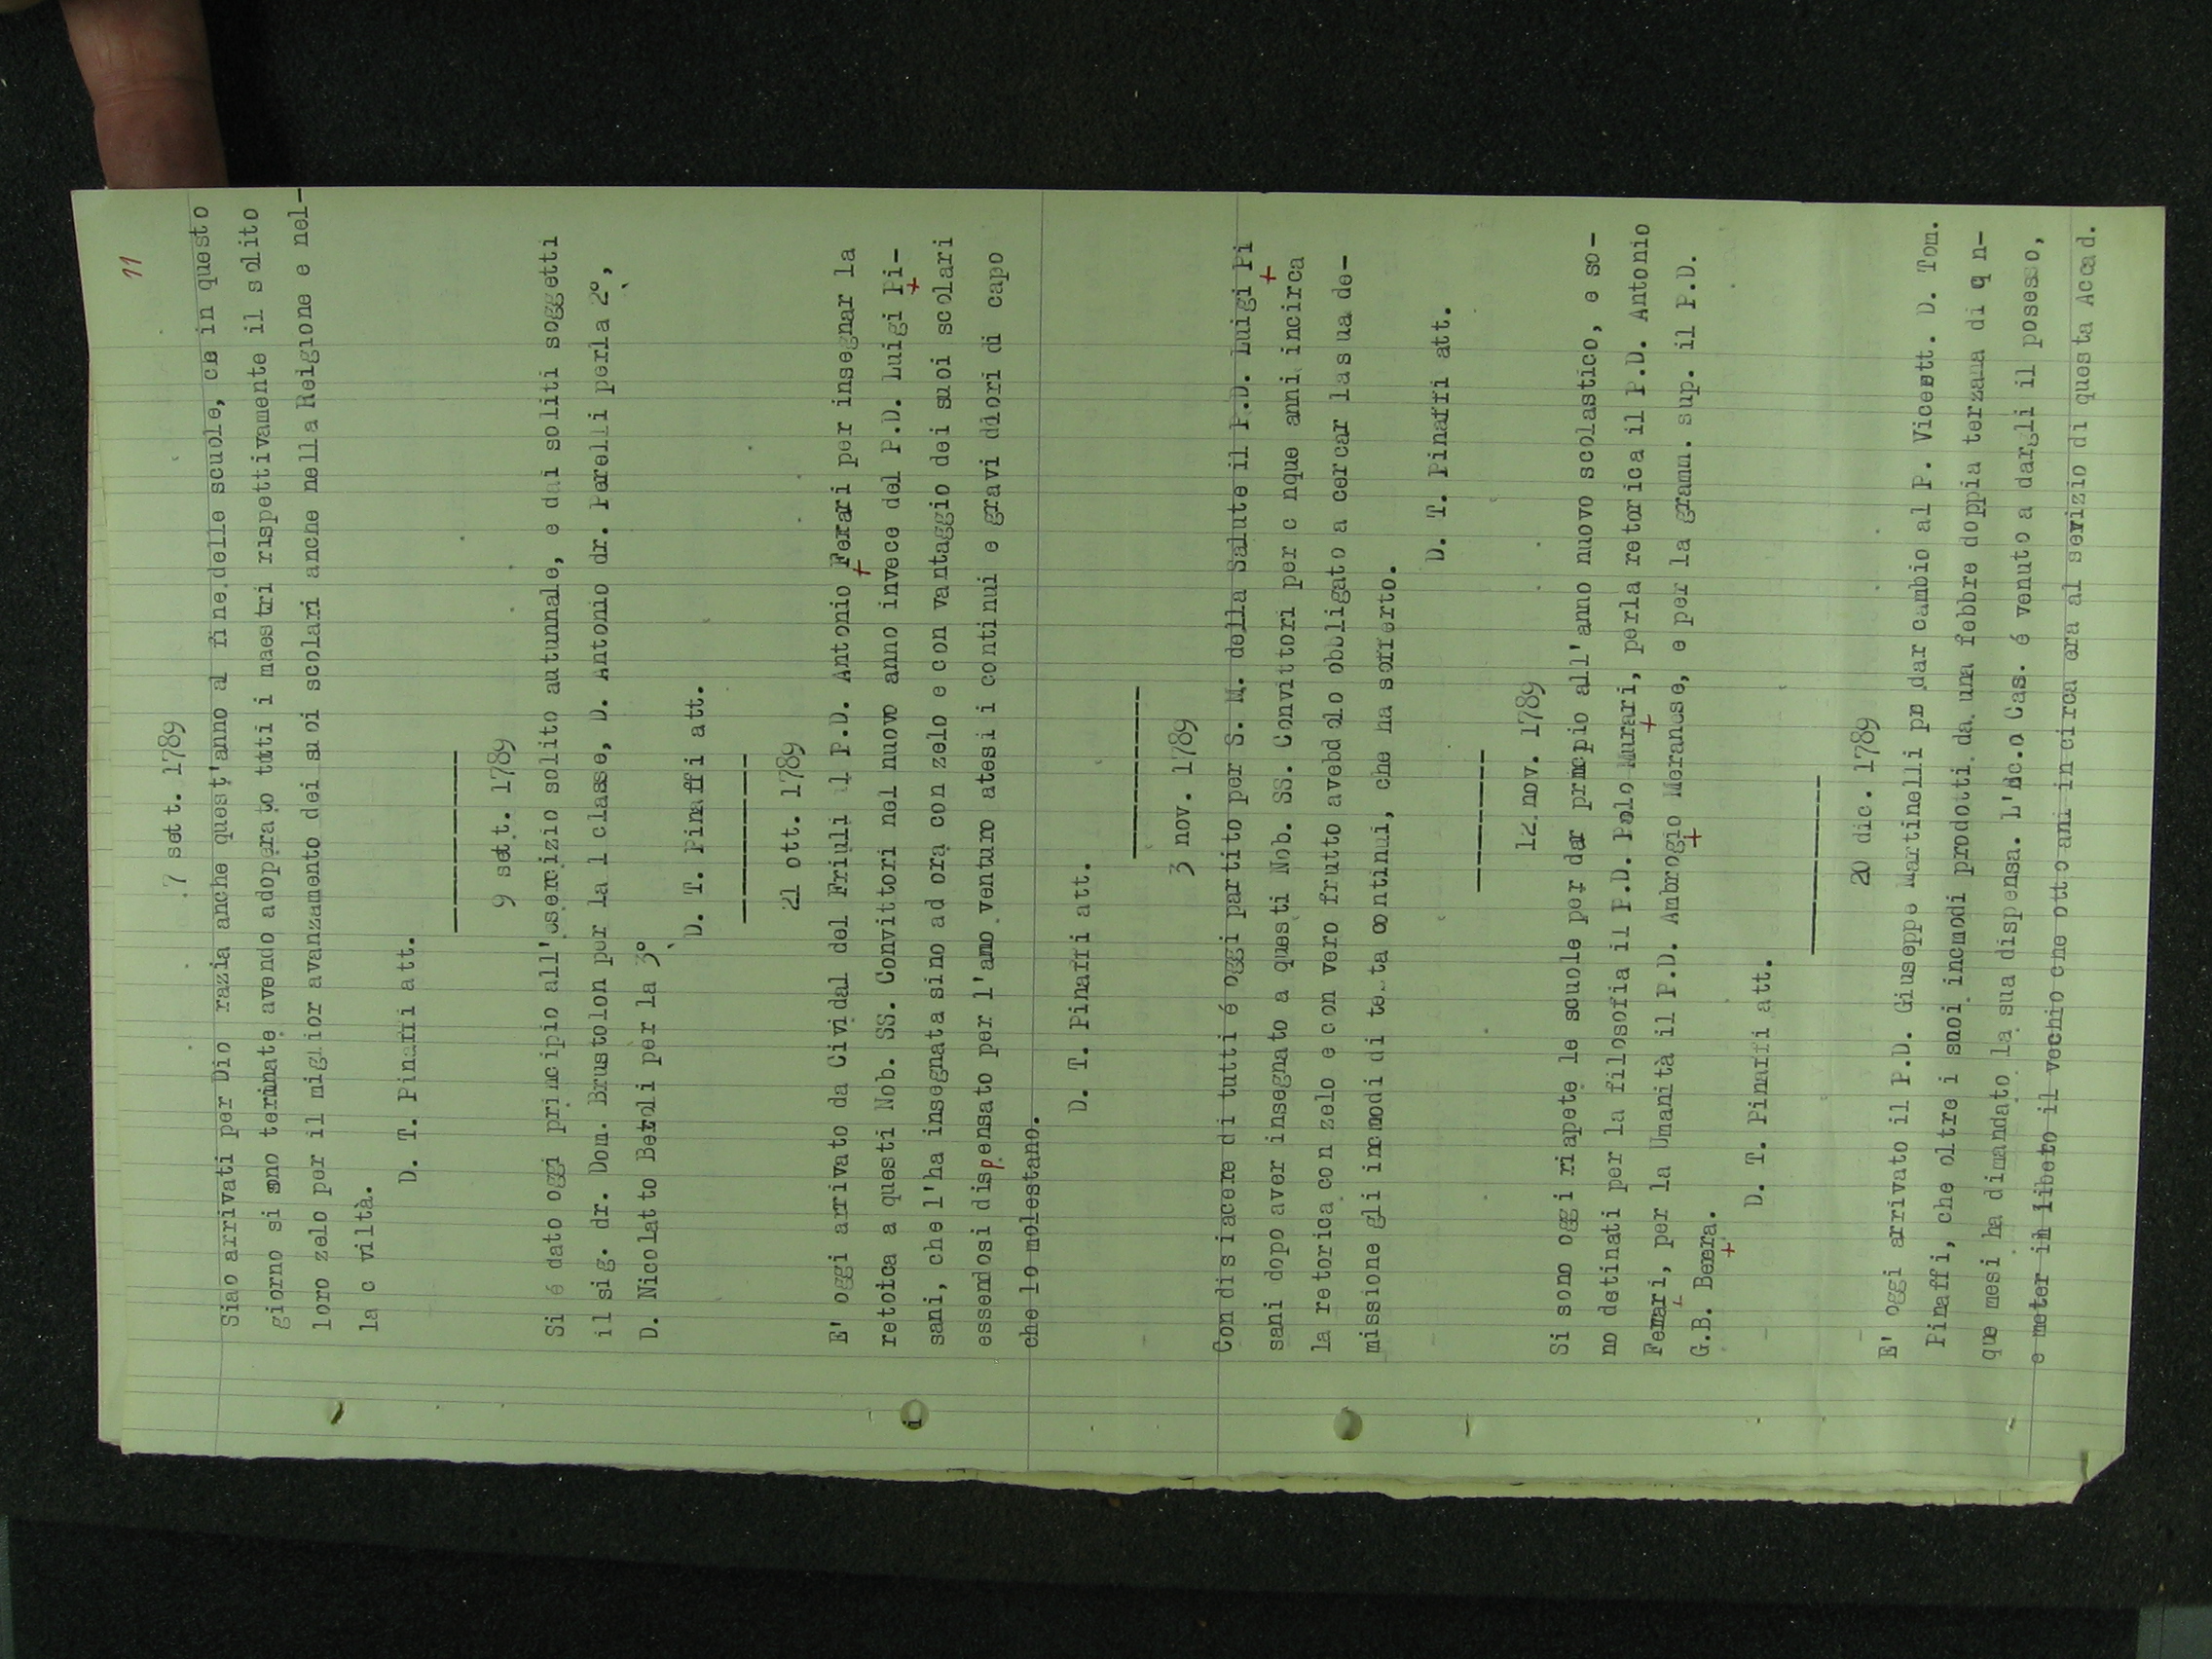 11
7 sett. 1789
Siao arrivati per Dio razia anche quest'anno al fine delle scuole, ce in questo
giorno si sono terminate avendo adoperato tutti i maestri rispettivamente il solito
loro zelo per il miglior avanzamento dei suoi scolari anche nella Reigione e nel-
la c viltà.
D. T. Pinaffi att.
9 sett. 1789
Si é dato oggi principio all'esercizio solito autunnale, e dai soliti soggetti
il sig. dr. Dom. Brustolon per la 1 classe, D. Antonio dr. Perelli perla 2°,
D. Nicolatto Betoli per la 3°
D. T. Pinaffi att.
21 ott. 1789
E' oggi arrivato da Cividal del Friuli il P.D. Antonio Ferari per insegnar la
retoica a questi Nob. SS. Convittori nel nuovo anno invece del P.D. Luigi Pi-
sani, che l'ha insegnata sino ad ora con zelo e con vantaggio dei suoi scolari
essendosi dispensato per l'anno venturo atesi i continui e gravi dolori di capo
che lo molestano.
D. T. Pinaffi att.
3 nov. 1789
Con disiacere di tutti é oggi partito per S. M. della Salute il P.D. Luigi Pi
sani dopo aver insegnato a questi Nob. SS. Convittori per c nque anni incirca
la retorica con zelo e con vero frutto avebdolo obbligato a cercar la sua de-
missione gli inmodi di testa continui, che ha sofferto.
D. T. Pinaffi att.
12 nov. 1789
Si sono oggi riapete le scuole per dar principio all'anno nuovo scolastico, e so-
no detinati per la filosofia il P.D. Polo Murari, perla retorica il P.D. Antonio
Ferrari, per la Umanità il P.D. Ambrogio Meranese, e per la gramm. sup. il P.D.
G.B. Bemera.
D. T. Pinaffi att.
20 dic. 1789
E' oggi arrivato il P.D. Giuseppe Martinelli pn dar cambio al P. Vicett. D. Tom.
Pinaffi, che oltre i suoi incmodi prodotti da una febbre doppia terzana di q n-
que mesi ha dimandato la sua dispensa. L' Cas. é venuto a dargli il posesso,
e meter in libero il vechio che otto ani in circa era al servizio di questa Accad.